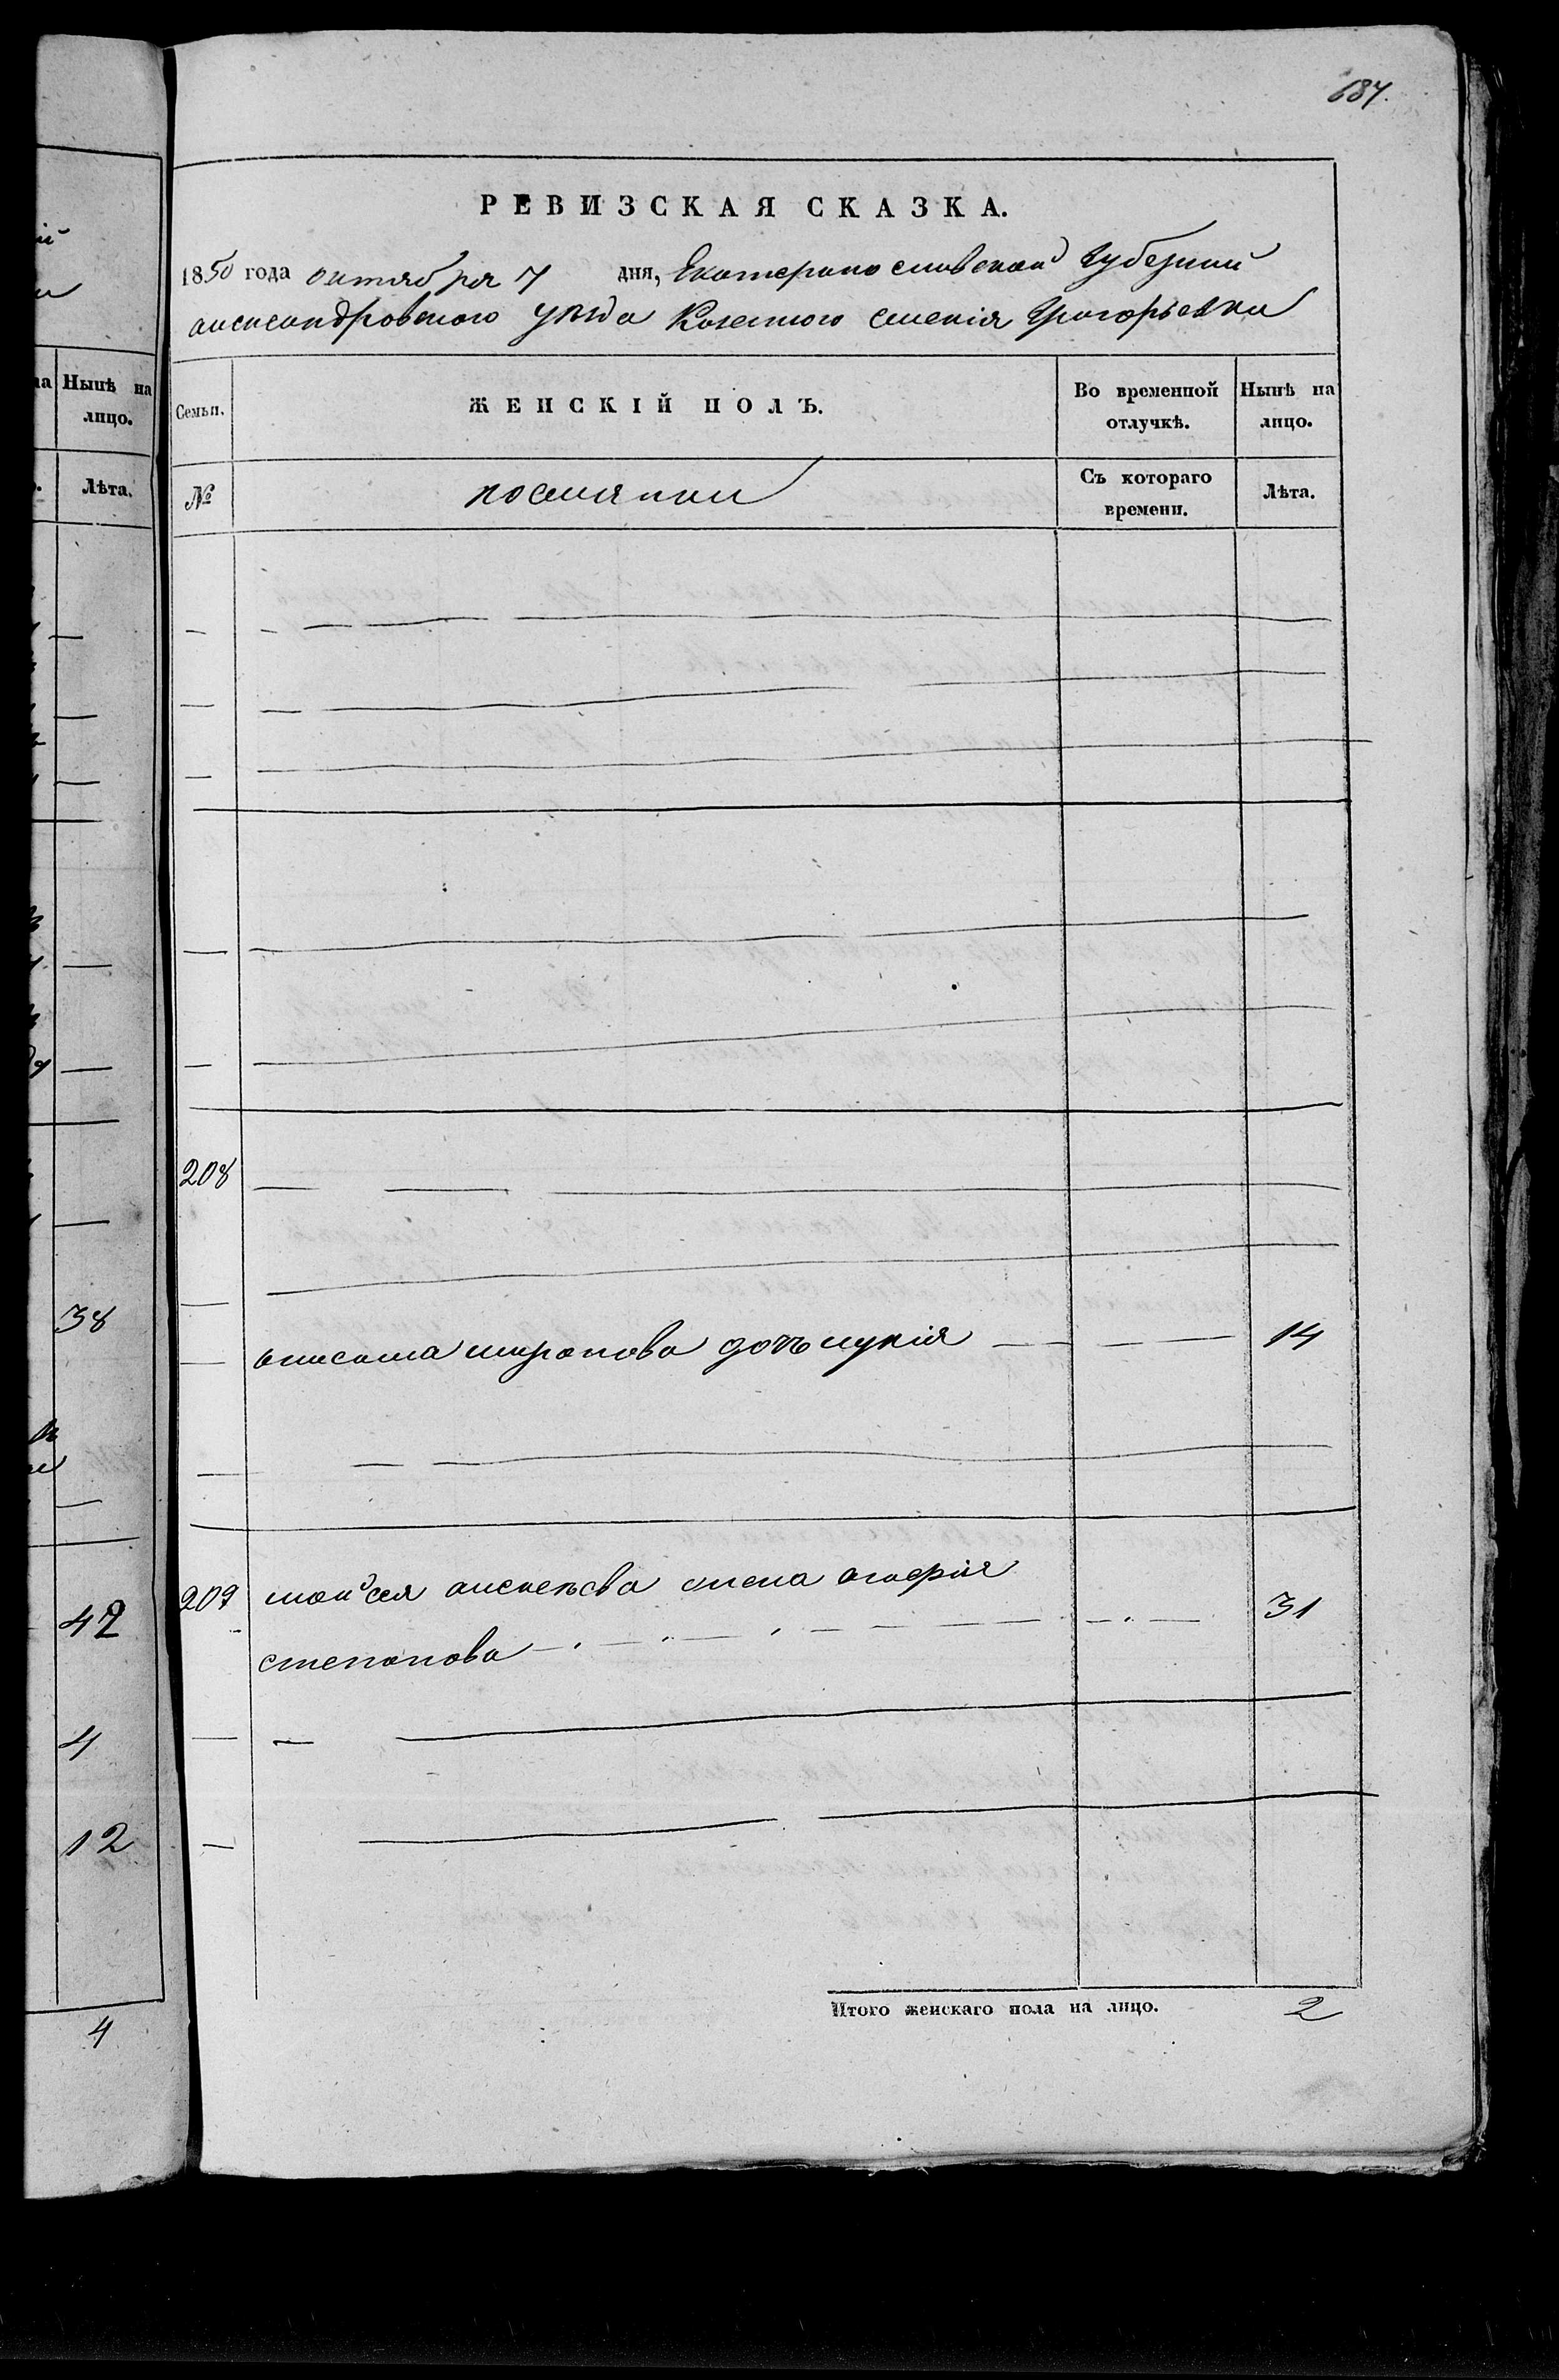 684.
РЕВИЗСКАЯ СКАЗКА.
1850 года октября 7 дня, Екатеринославской Губернии
александровского уезда Казенного селенія Григорьевки
Семьи.
ЖЕНСКІЙ ПОЛЪ.
Во временной отлучкѣ.
Нынѣ на лицо.
№
поселянки
Съ котораго времени.
Лѣта.
208
онисима миронова дочь лукія 14
209 мойсея алексѣева жена агафія 31
степанова
Итого женскаго пола на лицо. 2
Нынѣ на
лицо.
Лѣта.
38
42
4
12
4